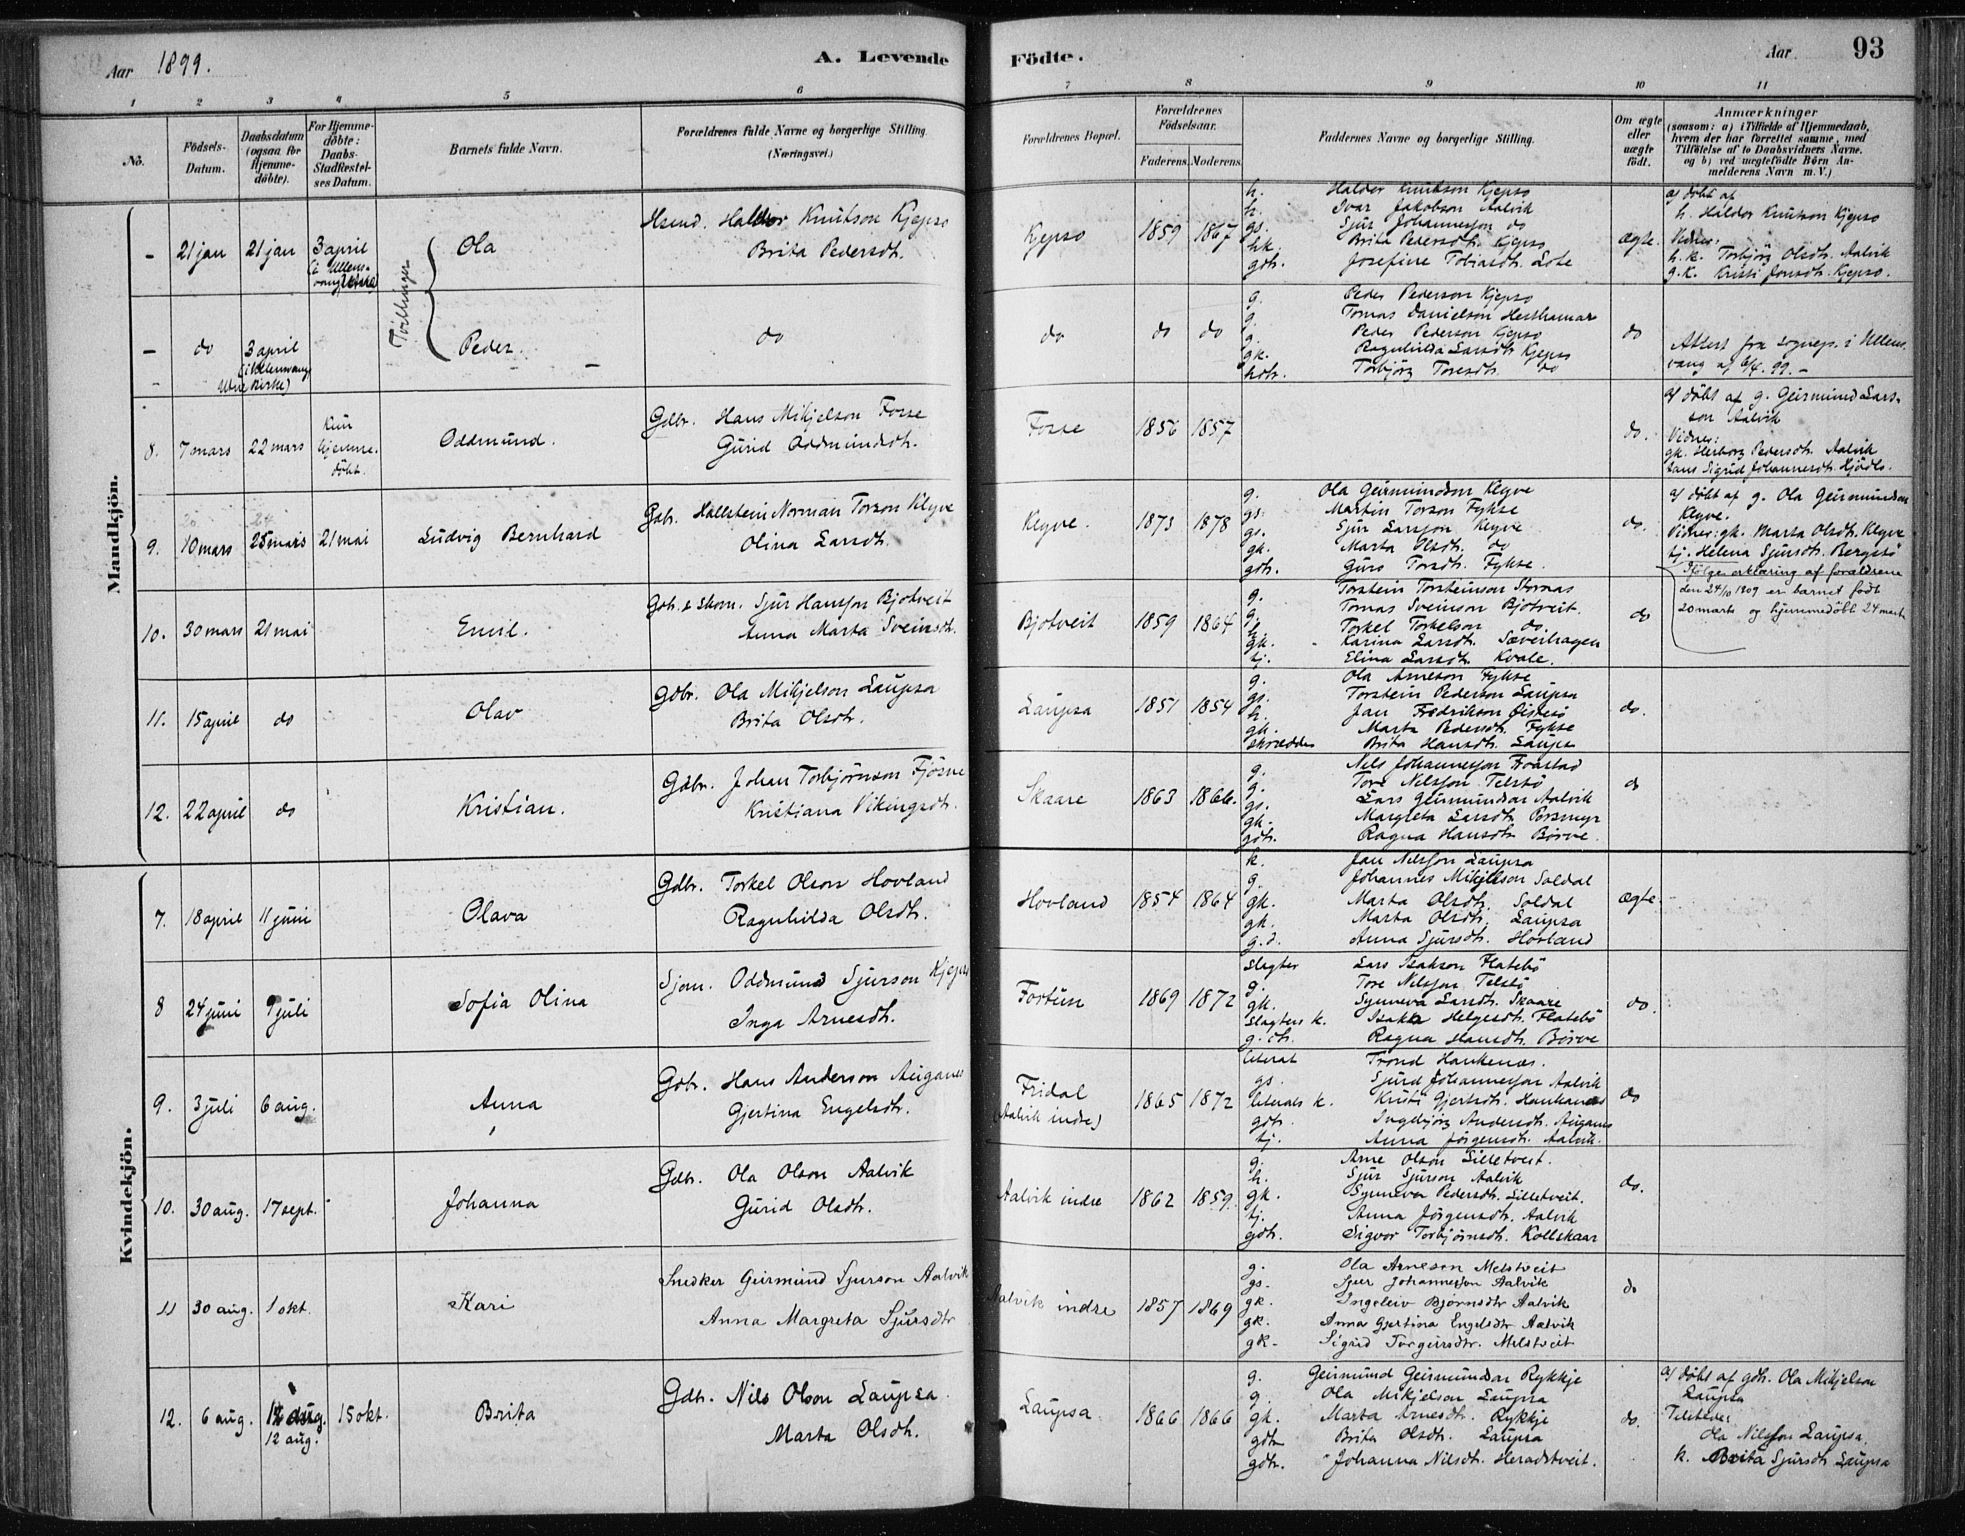 Aar 1899.
A. Levende Födte.
Aar
93
1 2 3 4 5 6 7 8 9 10 11
No.
Födsels-Datum.
Daabsdatum (ogsaa for Hjemme-döbte).
For Hjemme-döbte: Daabs-Stadfæstel-ses Datum.
Barnets fulde Navn.
Forældrenes fulde Navne og borgerlige Stilling.
(Næringsvei.)
Forældrenes Bopæl.
Forældrenes Födselsaar.
Faderens. Moderens.
Faddernes Navne og borgerlige Stilling.
Om ægte eller uægte födt.
Anmærkninger
(saasom: a) i Tilfælde af Hjemmedaab,
hvem der har forrettet samme, med
Tilföielse af to Daabsvidners Navne,
og b) ved uægtefödte Börn An-
melderens Navn m. V.)
Mandkjön.
- 21 jan 21 jan 3 april (i Ullens-vang kirke)
Tvillinger
Ola
Hsmd. Haldor Knutson Kjepso
Brita Pedersdt.
Kjepso 1859 1867
h. Haldor Knutson Kjepso
h. Ivar Jakobson Aalvik
gs. Sjur Johannesson do
hk. Brita Pedersdt. Kjepso
gdt. Josefine Tobiasdt. Lote
ægte.
a) döbt af
h. Haldor Knutson Kjepso
Vidner:
h.k. Torbjörg Olsdt. Aalvik
g.k. Kristi Jonsdt. Kjepso.
- do 3 april (i Ullensvang Utne kirke)
Peder.
do
do do do
g. Peder Pederson Kjepso
g. Tomas Danielson Hesthamar
g. Peder Pederson Kjepso
gk. Ragnhilda Larsdt. Kjepso
hdt. Torbjörg Toresdt. do
do
Attest fra sognep. i Ullens
vang af 6/4. 99. -
8. 7 mars 22 mars Kun hjemme-döbt.
Oddmund.
Gdbr. Hans Mikjelson Fosse
Gurid Oddmundsdt.
Fosse 1856 1857
do.
a) döbt af g. Geirmund Lars-
son Aalvik
Vidner:
gk. Herborg Pedersdt. Aalvik
Sigrid Johannesdt. Hjödls.
9. 10 mars 25 mars 21 mai
20 24
Ludvig Bernhard
Gdbr. Hallstein Norman Torson Klyve
Olina Larsdt.
Klyve. 1873 1878
g. Ola Geirmundson Klyve
gs. Martin Torson Fykse
gs. Sjur Larsson Klyve
gk. Marta Olsdt. do
gdt. Guro Torsdt. Fykse.
do.
a) döbt af g. Ola Geirmundson
Klyve.
Vidner: gk. Marta Olsdt. Klyve
tj. Helena Sjursdt. Bergstö
Ifölge erklæring af forældrene
den 24/10 1909 er barnet födt
20 marts og hjemmedöbt 24 marts
10. 30 mars 21 mai
Emil.
Gdb. & skom. Sjur Hansson Bjotveit
Anna Marta Sveinsdt.
Bjotveit 1859 1864
g. Torstein Torsteinson Stornas
g. Tomas Sveinson Bjotveit.
g. Torkel Torkelson do
gk. Karina Larsdt. Sæverhagen
tj. Elina Larsdt. Kvale.
do
11. 15 april do
Olav
Gdbr. Ola Mikjelson Laupsa
Brita Olsdt.
Laupsa 1851 1854
g. Ola Arneson Fykse
gs. Torstein Pederson Laupsa
h. Jan Fredrikson Öistesö
gk. Marta Pedersdt. Fykse
skrædder Brita Hansdt. Laupsa
do.
12. 22 april do
Kristian.
Gdbr. Johan Torbjörnson Fjösne
Kristiana Vikingsdt.
Skaare 1863 1866.
g. Nils Johannesson Froastad
g. Tore Nilsson Telstö
gs. Lars Geirmundson Aalvik
gk. Margreta Larsdt. Porsmyr
gdt. Ragna Hansdt. Börve.
do
Kvindekjön.
7. 18 april 11 juni
Olava
Gdbr. Torkel Olson Hovland
Ragnhilda Olsdt.
Hovland 1854 1864
k. Jan Nilsson Laupsa
g. Johannes Mikjelson Soldal
gk. Marta Olsdt. Soldal
gk. Marta Olsdt. Laupsa
g.d. Anna Sjursdt. Hovland
ægte
8 24 juni 9 juli
Sofia Olina
Sjom. Oddmund Sjurson Kjepso
Inga Arnesdt.
Fortun 1869 1872
Slagter Lars Isakson Flatebö
g. Tore Nilsson Telstö
gk. Synneva Larsdt. Skaare
Slagters k. Isakka Helgesdt. Flatebö
g.dt. Ragna Hansdt. Börve
do.
9. 3 juli 6 aug.
Anna
Gdbr. Hans Anderson Auganes
Gjertina Engelsdt.
Fridal (Aalvik indre) 1865 1872
literat Trond Hankenæs.
gs. Sjurd Johannesson Aalvik
literats k. Kristi Gjertsdt. Hankenæs
gdt. Ingebjörg Andersdt. Auganes
tj. Anna Jörgensdt. Aalvik.
do
10. 30 aug. 17 sept.
Johanna
Gdbr. Ola Olson Aalvik
Gurid Olsdt.
Aalvik indre 1862 1859.
g. Arne Olson Lilletveit.
h. Sjur Sjurson Aalvik
gk. Synneva Pedersdt. Lilletveit.
tj. Anna Jörgensdt. Aalvik
gdt. Sigvor Torbjörnsdt. Kollskaar
do.
11 30 aug. 1 okt.
Kari
Snedker Geirmund Sjurson Aalvik
Anna Margreta Sjursdtr
Aalvik indre 1857 1869
g. Ola Arneson Melstveit
gs. Sjur Johannesson Aalvik
gk. Ingeleiv Björnsdtr Aalvik
gk. Anna Gjertina Engelsdtr Aalvik
gk. Sigrid Torgeirsdtr. Melstveit
do
12. 6 aug. 12 aug. 15 okt.
Brita
Gdb. Nils Olson Laupsa
Marta Olsdt.
Laupsa 1866 1866
g. Geirmund Geirmundson Rykkje
g. Ola Mikjelson Laupsa
gk. Marta Arnesdt. Rykkje
gdt Brita Olsdt. Laupsa
gdt. Johanna Nilsdt. Heradstveit.
do.
a) döbt af gdb. Ola Mikjelson
Laupsa
Tilstede:
Ola Nilsson Laupsa.
k. Brita Sjursdt. Laupsa